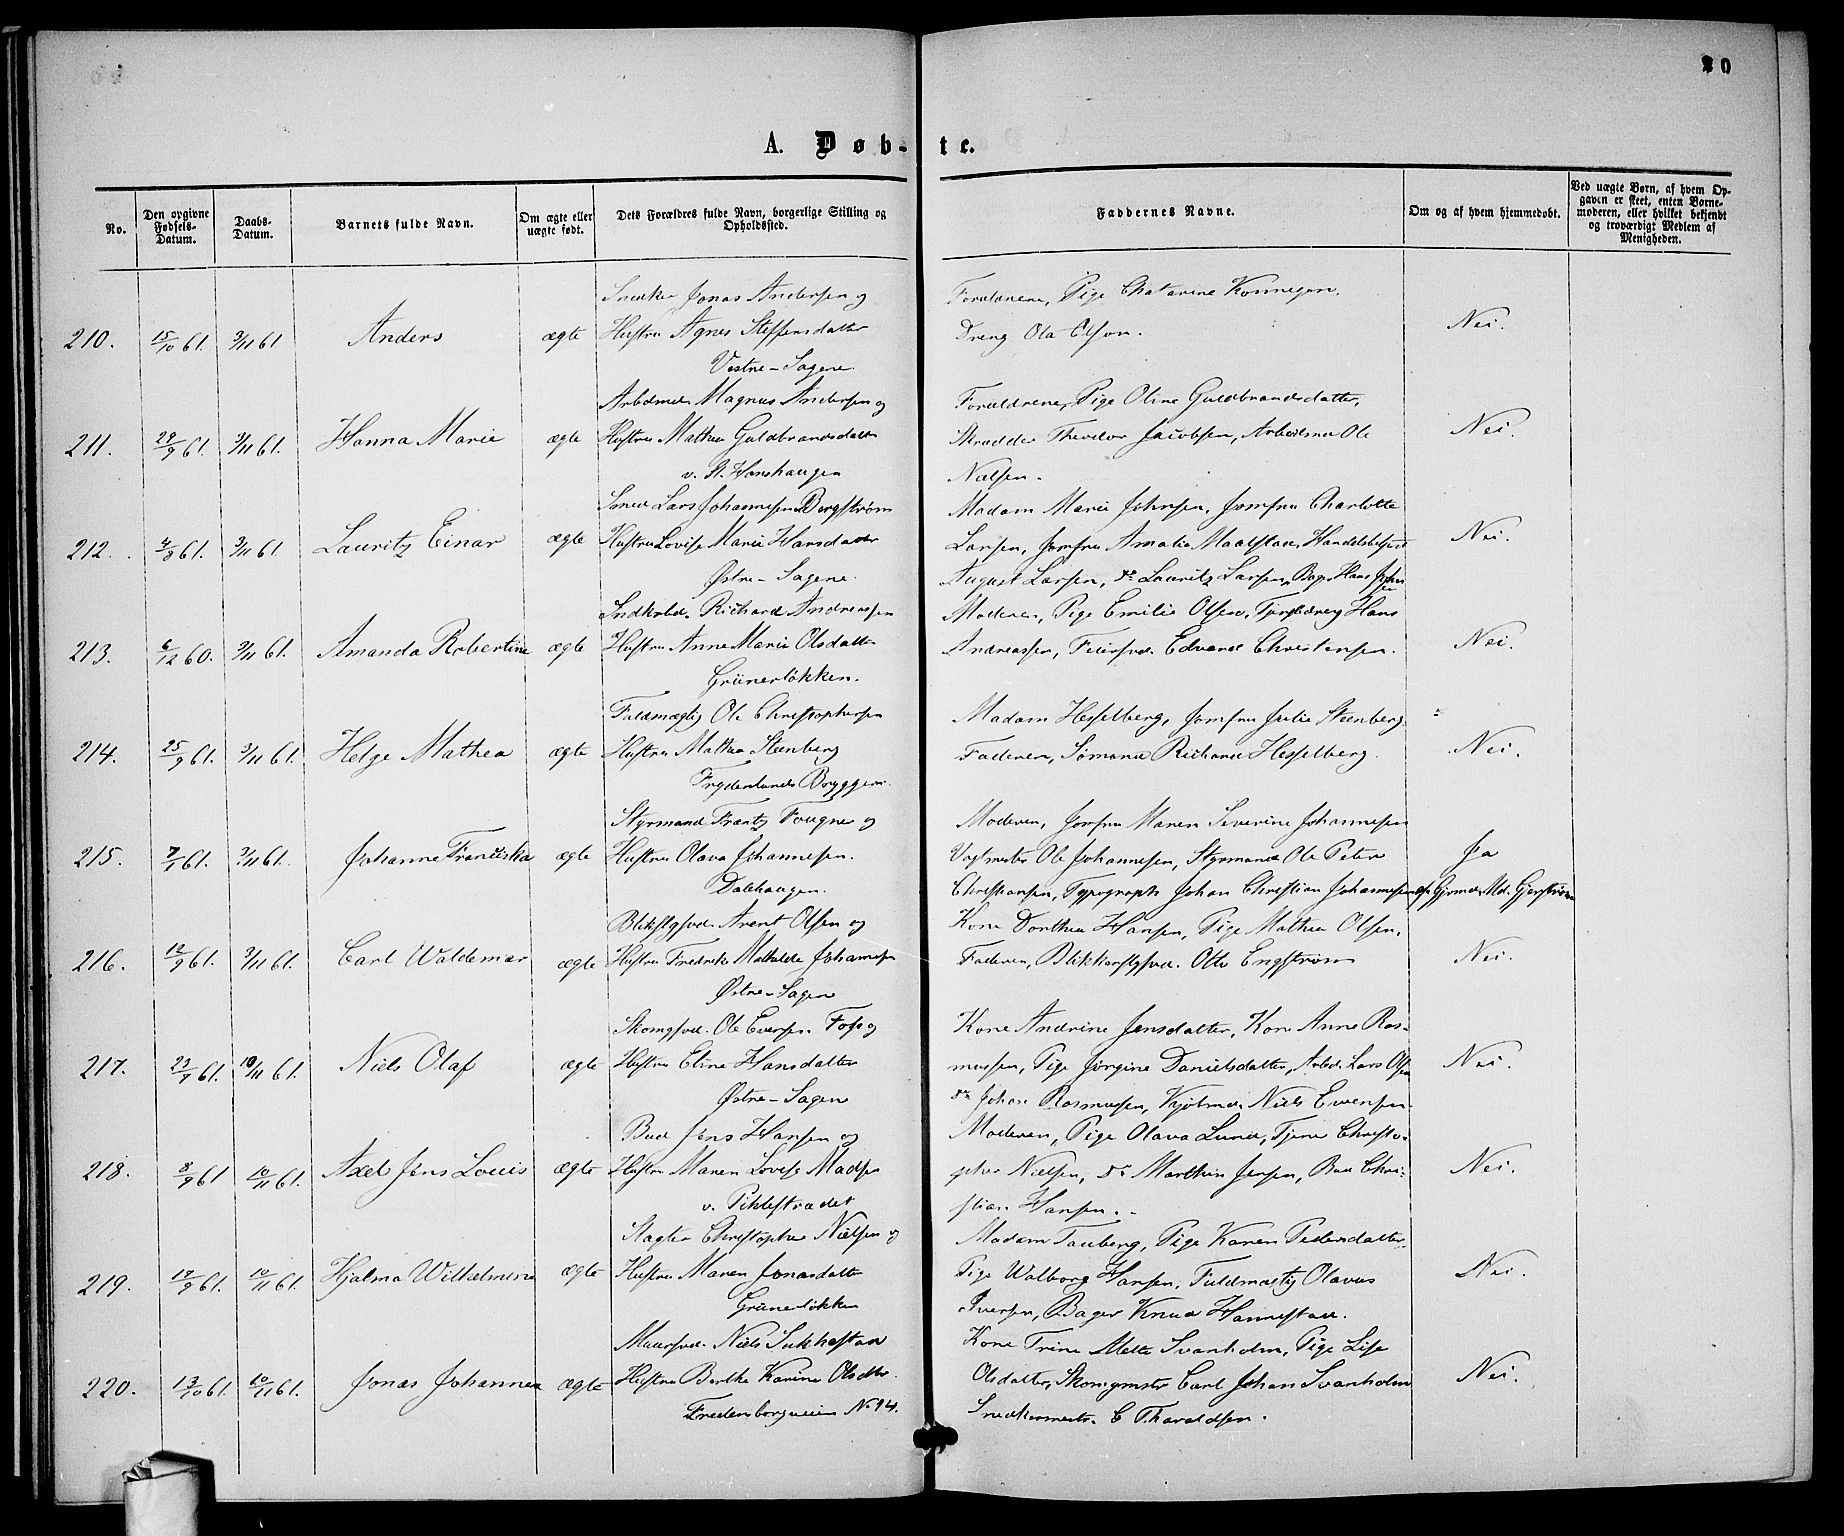 20
A. Døb-
te.
No.
Den opgivne Fødsels-Datum.
Daabs-Datum.
Barnets fulde Navn.
Om ægte eller uægte født.
Dets Forældres fulde Navn, borgerlige Stilling og Opholdssted.
Faddernes Navne.
Om og af hvem hjemmedøbt.
Ved uægte Børn, af hvem Op-
gaven er skeet, enten Barne-
moderen, eller hvilket bekjendt
og troværdigt Medlem af
Menigheden.
210. 15/10 61. 3/11 61. Anders ægte
Snedker Jonas Andersen og
Hustru Agnes Steffensdatter
Vestre-Sagene.
Forældrene, Pige Chatarine
Dreng Ola Olson.
Nei.
211. 29/9 61. 3/11 61. Hanna Marie ægte
Arbdmd. Magnus Andersen og
Hustru Mathea Guldbrandsdatter
v. St. Hanshaugen
Forældrene, Pige Oline Guldbrandsdatter,
Skrædder Theodor Jacobsen, Arbeidsmd Ole
Nielsen.
Nei.
212. 4/8 61. 3/11 61. Lauritz Einar ægte
Smed Lars Johannesen Bergstrøm
Hustru Lovise Marie Hansdatter
Østre-Sagene.
Madam Marie Johnsen, Jomfru Charlotte
Larsen, Jomfru Amalia Maalstad, Handelsbetjent
August Larsen, do Lauritz Larsen, Bag. Hans Johnsen
Nei.
213. 6/12 60. 3/11 61. Amanda Robertine ægte
Richard Andreassen
Hustru Anne Marie Olsdatter
Grünerløkken.
Moderen, Pige Emilie Olsen, Hans
Andreassen, Feiersvd. Edvard Christensen.
Nei.
214. 25/9 61. 3/11 61. Helge Mathea ægte
Fuldmægtig Ole Christophersen
Hustru Mathea Steenberg
Frydenlunds Bryggeri.
Madam Hesselberg, Jomfru Julie Steenberg,
Faderen, Sømand Richard Hesselberg.
Nei.
215. 7/1 61. 3/11 61. Johanne Franciska ægte
Styrmand Frantz Fougner og
Hustru Olava Johannesen.
Dalehaugen.
Moderen, Jomfru Maren Severine Johannesen
Vagtmester Ole Johannesen, Styrmand Ole Peter
Christiansen, Typograph Johan Christian Johannesen
Ja
af Gjormd. Md. Gjerstrøm
216. 12/9 61. 3/11 61. Carl Waldemar ægte
Blikslgsvd. Arent Olsen og
Hustru Fredrikke Mathilde Johannesen
Østre-Sagene
Kone Dorthea Hansen, Pige Mathea Olsen,
Faderen, Blikkenslgsvd. Otto Engstrøm
Nei.
217. 22/9 61. 10/11 61. Niels Olaf ægte
Skomgsvd. Ole Eversen Foss og
Hustru Eline Hansdatter
Østre-Sagene
Kone Andrine Jensdatter, Kone Anne Ras-
mussen, Pige Jørgine Danielsdatter, Arbd. Lars Olsen
do Johan Rasmussen, Kjøbmd. Niels Evensen.
Nei.
218. 8/9 61 10/11 61. Axel Jens Louis ægte
Bud Jens Hansen og
Hustru Maren Lovise Madsen
v. Pilestrædet
Moderen, Pige Olava Lund, Tjener Christo-
pher Nielsen, do Marthin Jensen, Bud Chri-
stian Hansen.
Nei.
219. 17/9 61. 10/11 61. Hjalma Wilhelmine ægte
Slagter Christopher Nielsen og
Hustru Maren Jonasdatter
Grünerløkken
Madam Tauberg, Pige Karen Pedersdatter,
Pige Walborg Hansen, Fuldmægtig Olavus
Iversen, Bager Knud Hannestad.
Nei.
220. 13/10 61. 10/11 61. Jonas Johannes ægte
Muursvd. Niels
Hustru Berthe Karine Olsdtr.
Fredensborgveien No 94.
Kone Trine Mette Svanholm, Pige Lise
Olsdatter, Skomgmstr Carl Johan Svanholm
Snedkermestr. C Tharaldsen.
Nei.